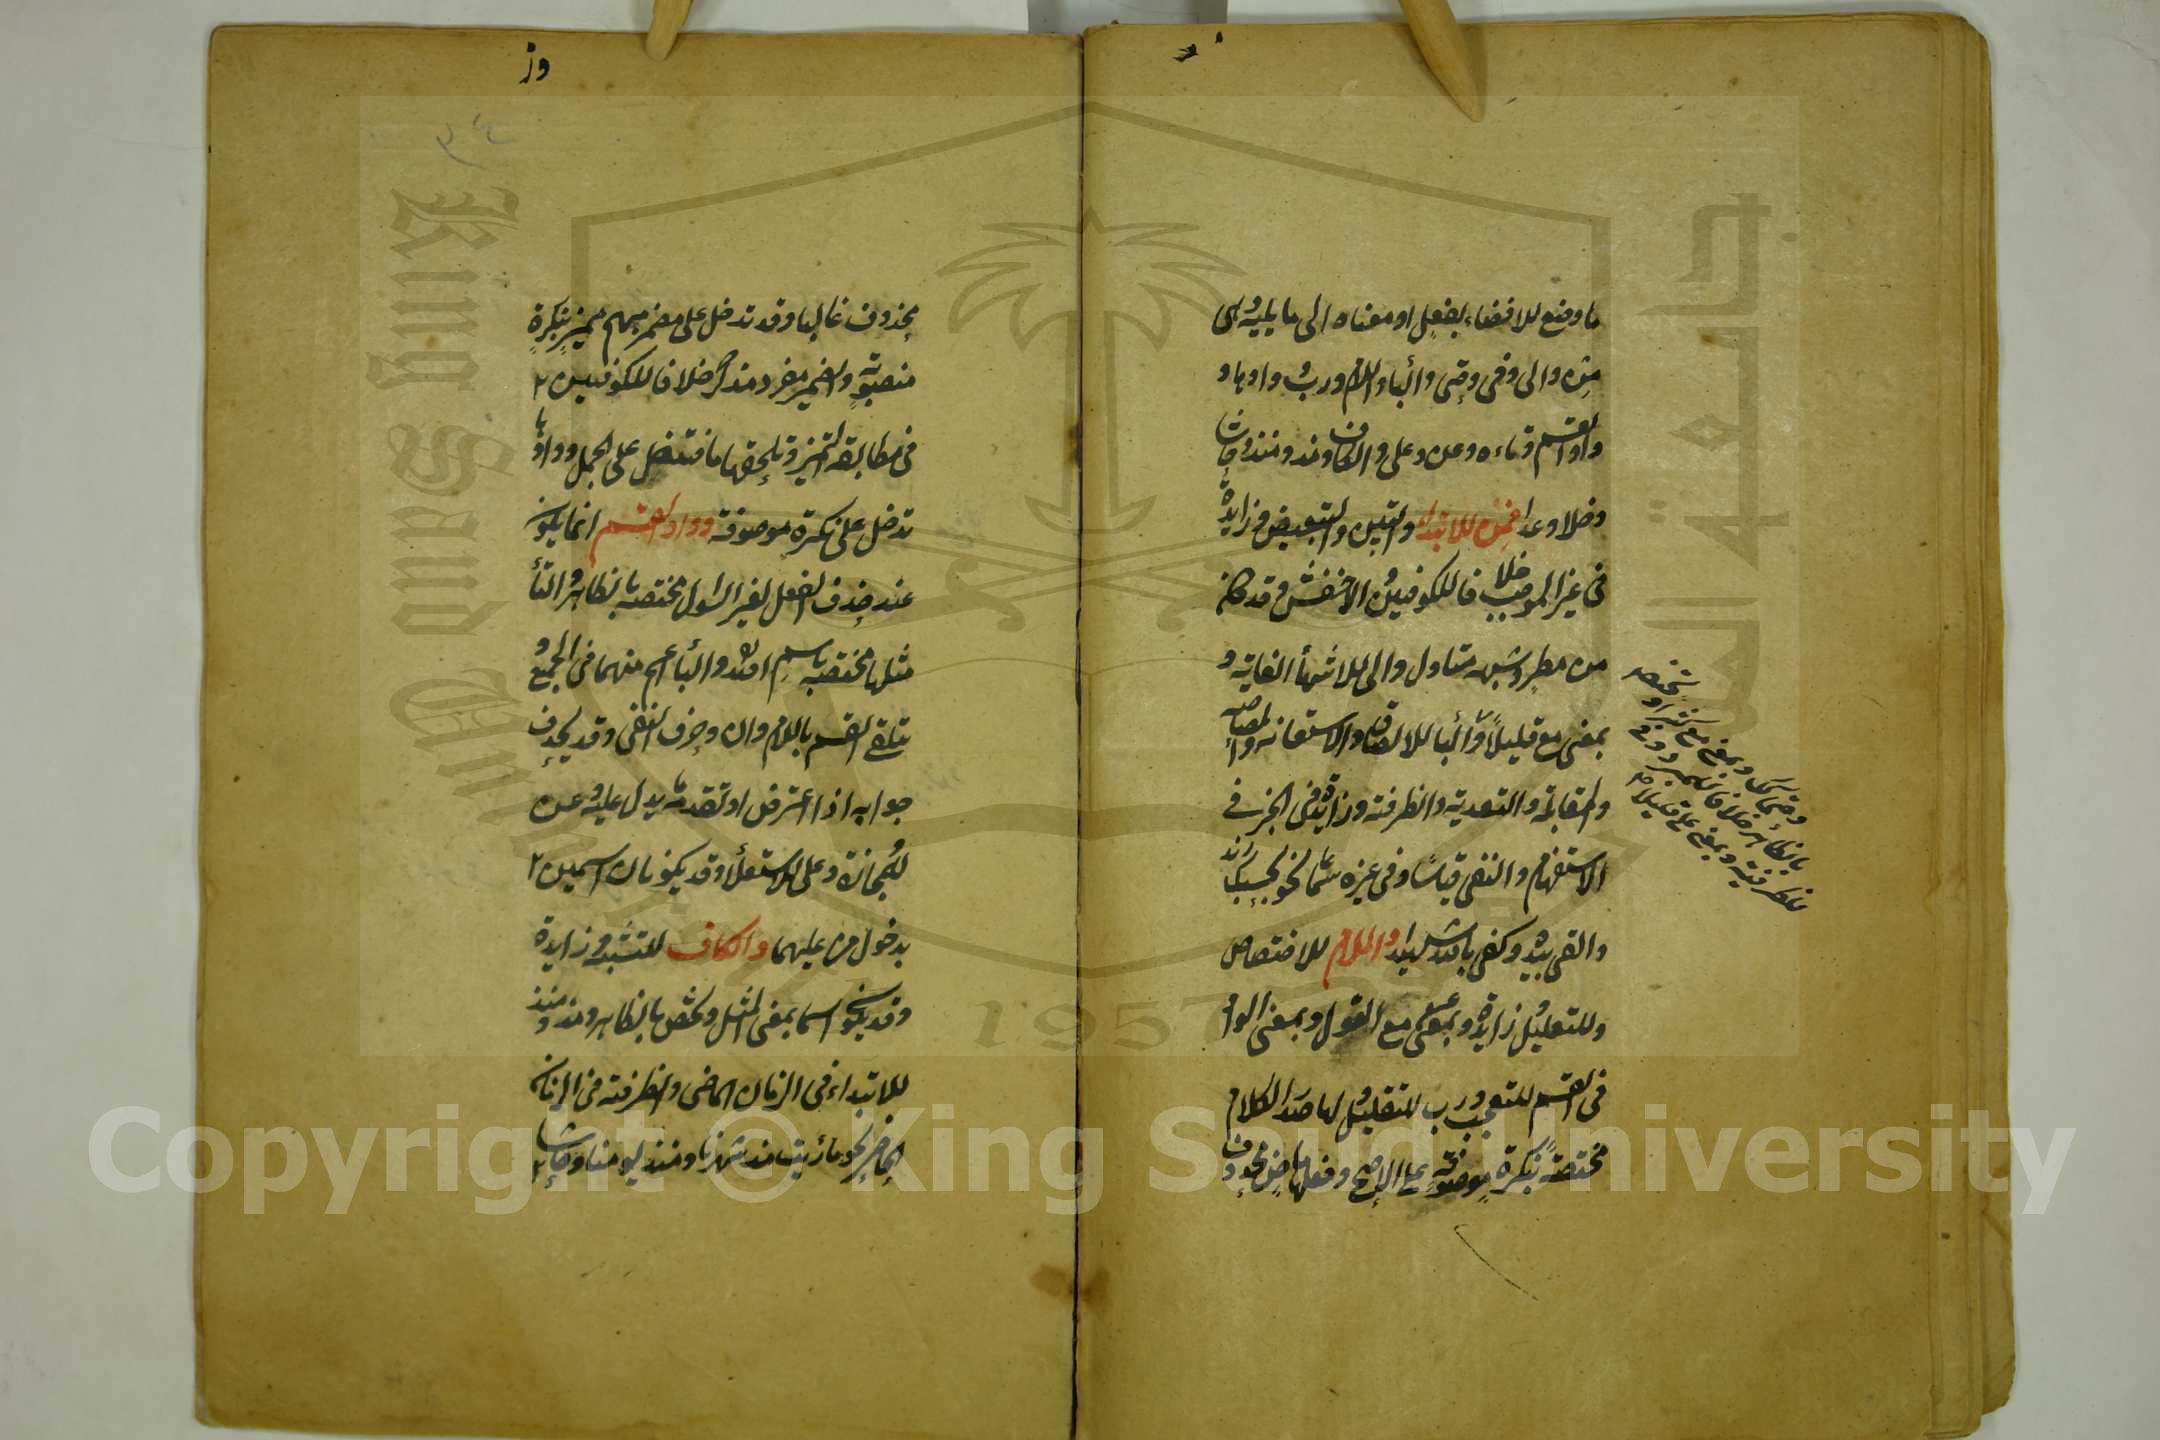 ما وضع للافضاء بفعل او معناه الى ما يليه وهى
من والى وفى وحتى والباء واللام ورب وواوها و
واو القسم وتاءه وعن وعلى والكاف ومذ ومنذ وحاشا
وخلا وعدا فمن للابتداء والتبين والتبعيض وزايدة
فى غير الموجب خلافا للكوفين والاخفش وقد كان
من مطر وشبهه متاول والى للانتهاء الغاية و
بمعنى مع قليلاً والباء للالصاق والاستعانة والمصاحبه
والمقابلة والتعدية والظرفية وزايدة فى الخبر فى
الاستفهام والنفى قياسًا وفى غيره سماعا نحو بحسبك زيد
والقى بيده وكفى بالله شهيدا واللام للاختصاص
وللتعليل وزايدة وبمعنى عن مع القول وبمعنى الواو
فى القسم للتعجب ورب للتقليل ولها صدر الكلام
مختصة بنكرة موصوفة على الاصح وفعلها ماض محذوف
وحتى كذلك وبمعنى مع كثيرا وتختص
بالظاهر خلافا للمبرد وفى
للظرفية وبمعنى على قليلا صح
وز
٣٤
محذوف غالبا وقد تدخل على مضمر مبهم مميز بنكرة
منصوبة والضمير مفرد مذكر خلافا للكوفيين
فى مطابقة التميز وتلحقها ما فتدخل على الجمل وواوها
تدخل على نكرة موصوفة وواو القسم انما يكون
عند حذف الفعل لغير السؤال مختصة بالظاهر والتاء
مثلها مختصة باسم الله والباء اعم منهما فى الجميع و
تلقى القسم باللام وان وحرف النفى وقد يحذف
جوابه اذا اعترض او تقدمه ما يدل عليه وعن
للمجاوزة وعلى للاستعلاء وقد يكونان اسمين
بدخول من عليهما والكاف للتشبيه وزايدة
وقد يكون اسما بمعنى المثل وتختص بالظاهر ومذ ومنذ
للابتداء فى الزمان الماضى والظرفية فى الزمان
الحاضر نحو ما رأيت مذ شهرنا ومنذ يومنا وحاشا
Copyright © King Saud University
King Saud University
1957